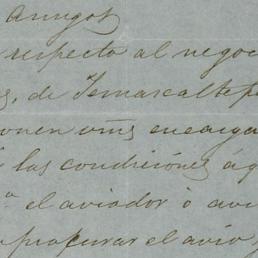 Amigos
respecto al negoc
de Temascaltepe
onen vms encarga
las condiciones á q
el aviador ó avi
procurar el avio,